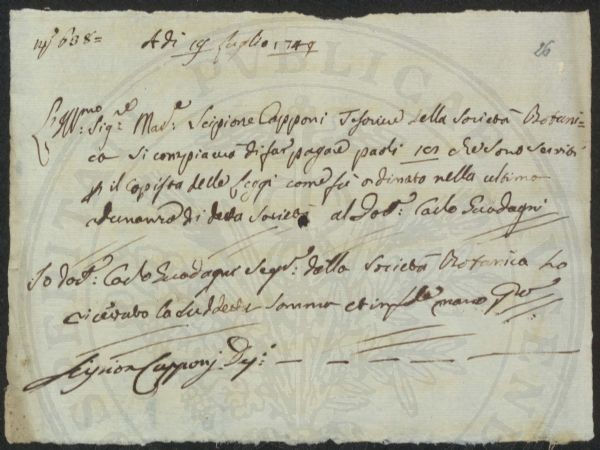 nº 638 = A di 19 luglio 1749 26
Ill.mo Sig.re Mar.e Scipione Capponi Tesoriere della Società Botani=
ca si compiaccia di far pagare paoli che sono serviti
p il Copista delle come fù ordinato nella ultima
Adunanza di detta Società al Dott.e Carlo Guadagni
Io Dott.e Carlo Guadagni Segr.o della Società Botanica ho
ricevuto la suddetta somma et in fede mano pp.a
Scipion Capponj